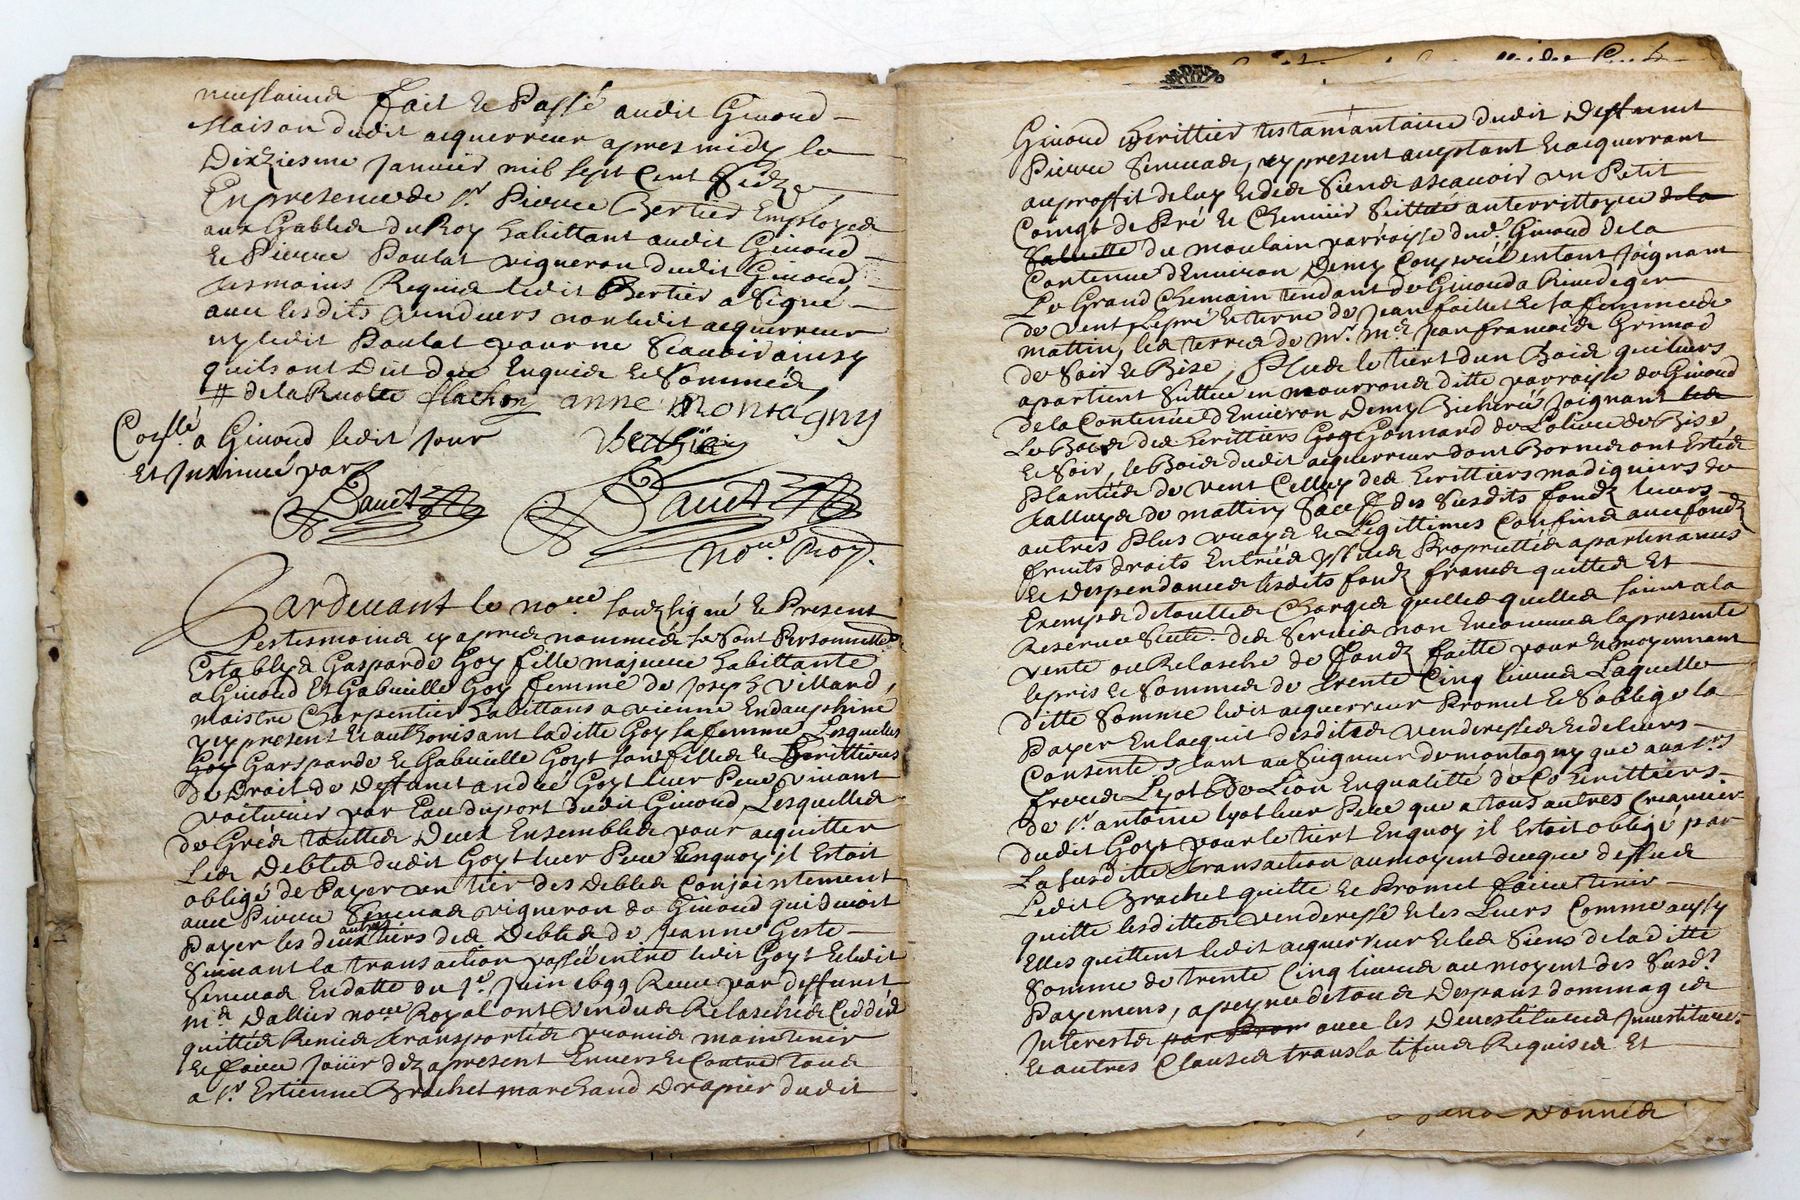 fait et Passé audit Givord
Maison dudit acquerreur apres midy le
Dixziesme Janvier mil sept Cent Seize
En presence de Sr Pierre Bertier Employe
aux Gables du Roy habittant audit Givord
et Pierre Poulat vigneron dudit Givord
tesmoins Requis ledit Bertier a Signé
avec lesdits vendeurs non ledit acquerreur
ny ledit Poulat pour ne Scavoir ainsy
quils ont Dit due Enquis et Sommés
# de la Ruolle flachon anne Montagny
Conslé a Givord ledit jour Berthier
Et Insinué par
Bauet Bauet
nore Roy.
Pardevant le nore soubsigné et Present
les tesmoins cy apres nommés se sont Personnellet
Establyes Gasparde Goy fille majeure habittante
a Givord Et Gabrielle Goy femme de Joseph Villard,
maistre Charpentier habittans a vienne En dauphiné
cy present et authorisant laditte Goy sa femme Lesquelles
Goy Garsparde et Gabrielle Goyt sont filles et herittieres
de Droit de Deffunct andré Goyt leur Pere vivant
voiturier par Eau du port dudit Givord, Lesquelles
de Grés touttes Deux Ensembles pour acquitter
Les Debtes dudit Goyt leur Pere Enquoy il Estoit
obligé de Payer un tier des Debtes Conjointement
avec Pierre Seneuas vigneron de Givord qui devoit
payer les deux autres tiers des Debtes de Jeanne Geste
Suivant la transaction passé entre ledit Goyt et ledit
Seneuas En datte du 1er Juin 1699 Receue par deffunct
me Dallier nore Royal ont vendus Relaschés Ceddés
quittés Remis transportés promis maintenir
et faire jouir dez apresent Envers et Contre tous
a Sr Estienne Brachet marchand Drapier dudit
Givord herittier testamantaire dudit Deffunct
Pierre Seneuas, cy present aceptant et acquerrant
au proffit de luy et des Siens ascavoir un Petit
Coingt de Pré et Chenevier Sittué au territtoyre de la
Sabliette du moulain parroisse dud. Givord de la
Contenue d'Environ Demy Coupée entout joignant
Le Grand Chemain tendant de Givord a Rivedegier
de vent, le pré et terre de Jean faillet et sa femme de
mattin, les terres de Mr. Me Jean francois Grimod
de Soir et Bise, Plus le tiert dun Bois qui leurs
apartient Sittué en mourrond ditte parroisse de Givord
de la Contenue d'Environ Demy Bicherée joignant les
Le Bois des herittiers Goy Gonnard de Lolieu de Bise
et Soir, le Bois dudit acquerreur dont Bornes ont Estés
Plantées de vent Celluy des herittiers
de mattin Sauf des susdits fondz leurs
autres Plus vrays et Legittimes Confins avec fondz
fruits droits Entrées yssues Proprietés apartenances
et despendances lesdits fondz francs quittes et
Exempts de touttes Charges quelles quelles soient a la
Reserve Seule des Servis non Encourus la presente
vente ou Relasche de fondz faitte pour et moyennant
le pris et Somme de trente Cinq livres Laquelle
ditte Somme ledit acquerreur Promet et Soblige la
Payer En lacquit desdittes venderesses et de leurs
Consentement tant au Seigneur de montagny que aux Srs
freres Lyot de Lion En qualitté de Coherittiers
de Sr. antoine Lyot leur Pere que a tous autres Creanciers
dudit Goyt pour le tiert Enquoy il Estoit obligé par
La Susditte transaction au moyent dequoy
Ledit Brachet quitte et Promet faire tenir
quitte lesdittes venderesse et les Leurs Comme aussy
Elles quittent ledit acquerreur et les Siens de la ditte
Somme de trente Cinq livres au moyent des Susd.
Payemens, apeyne de tous Despans dommages
Interests par Prom avec les Devestitures Investitures
et autres Clauses translatifves Requises Et
Donnés